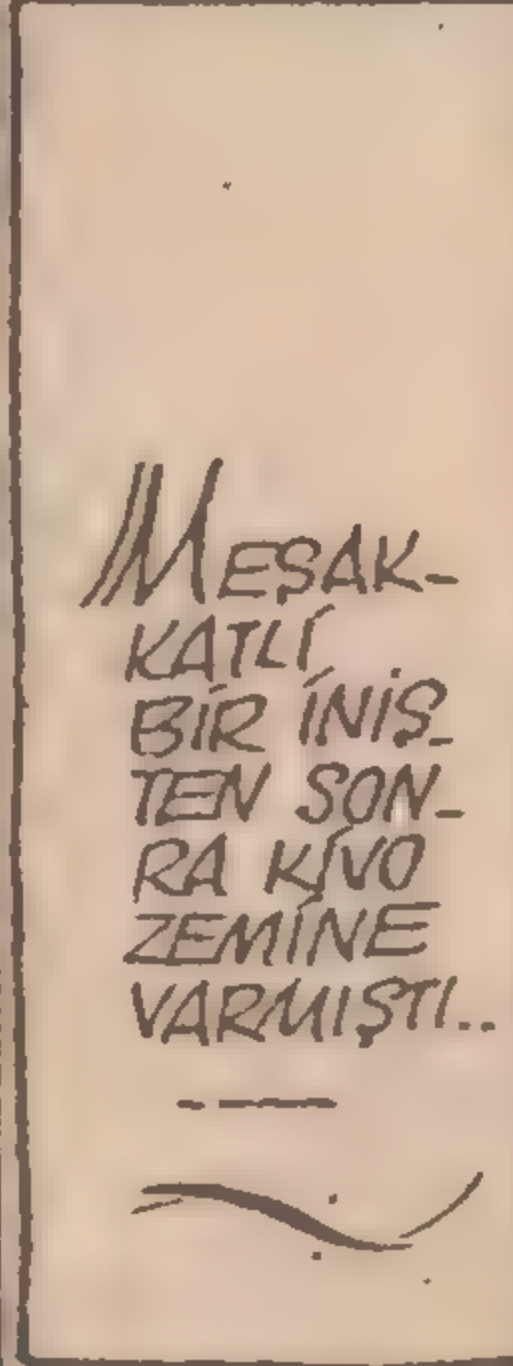 MEŞAK-
KATLİ
BİR İNİŞ-
TEN SON-
RA KİVO
ZEMİNE
VARMIŞTI..